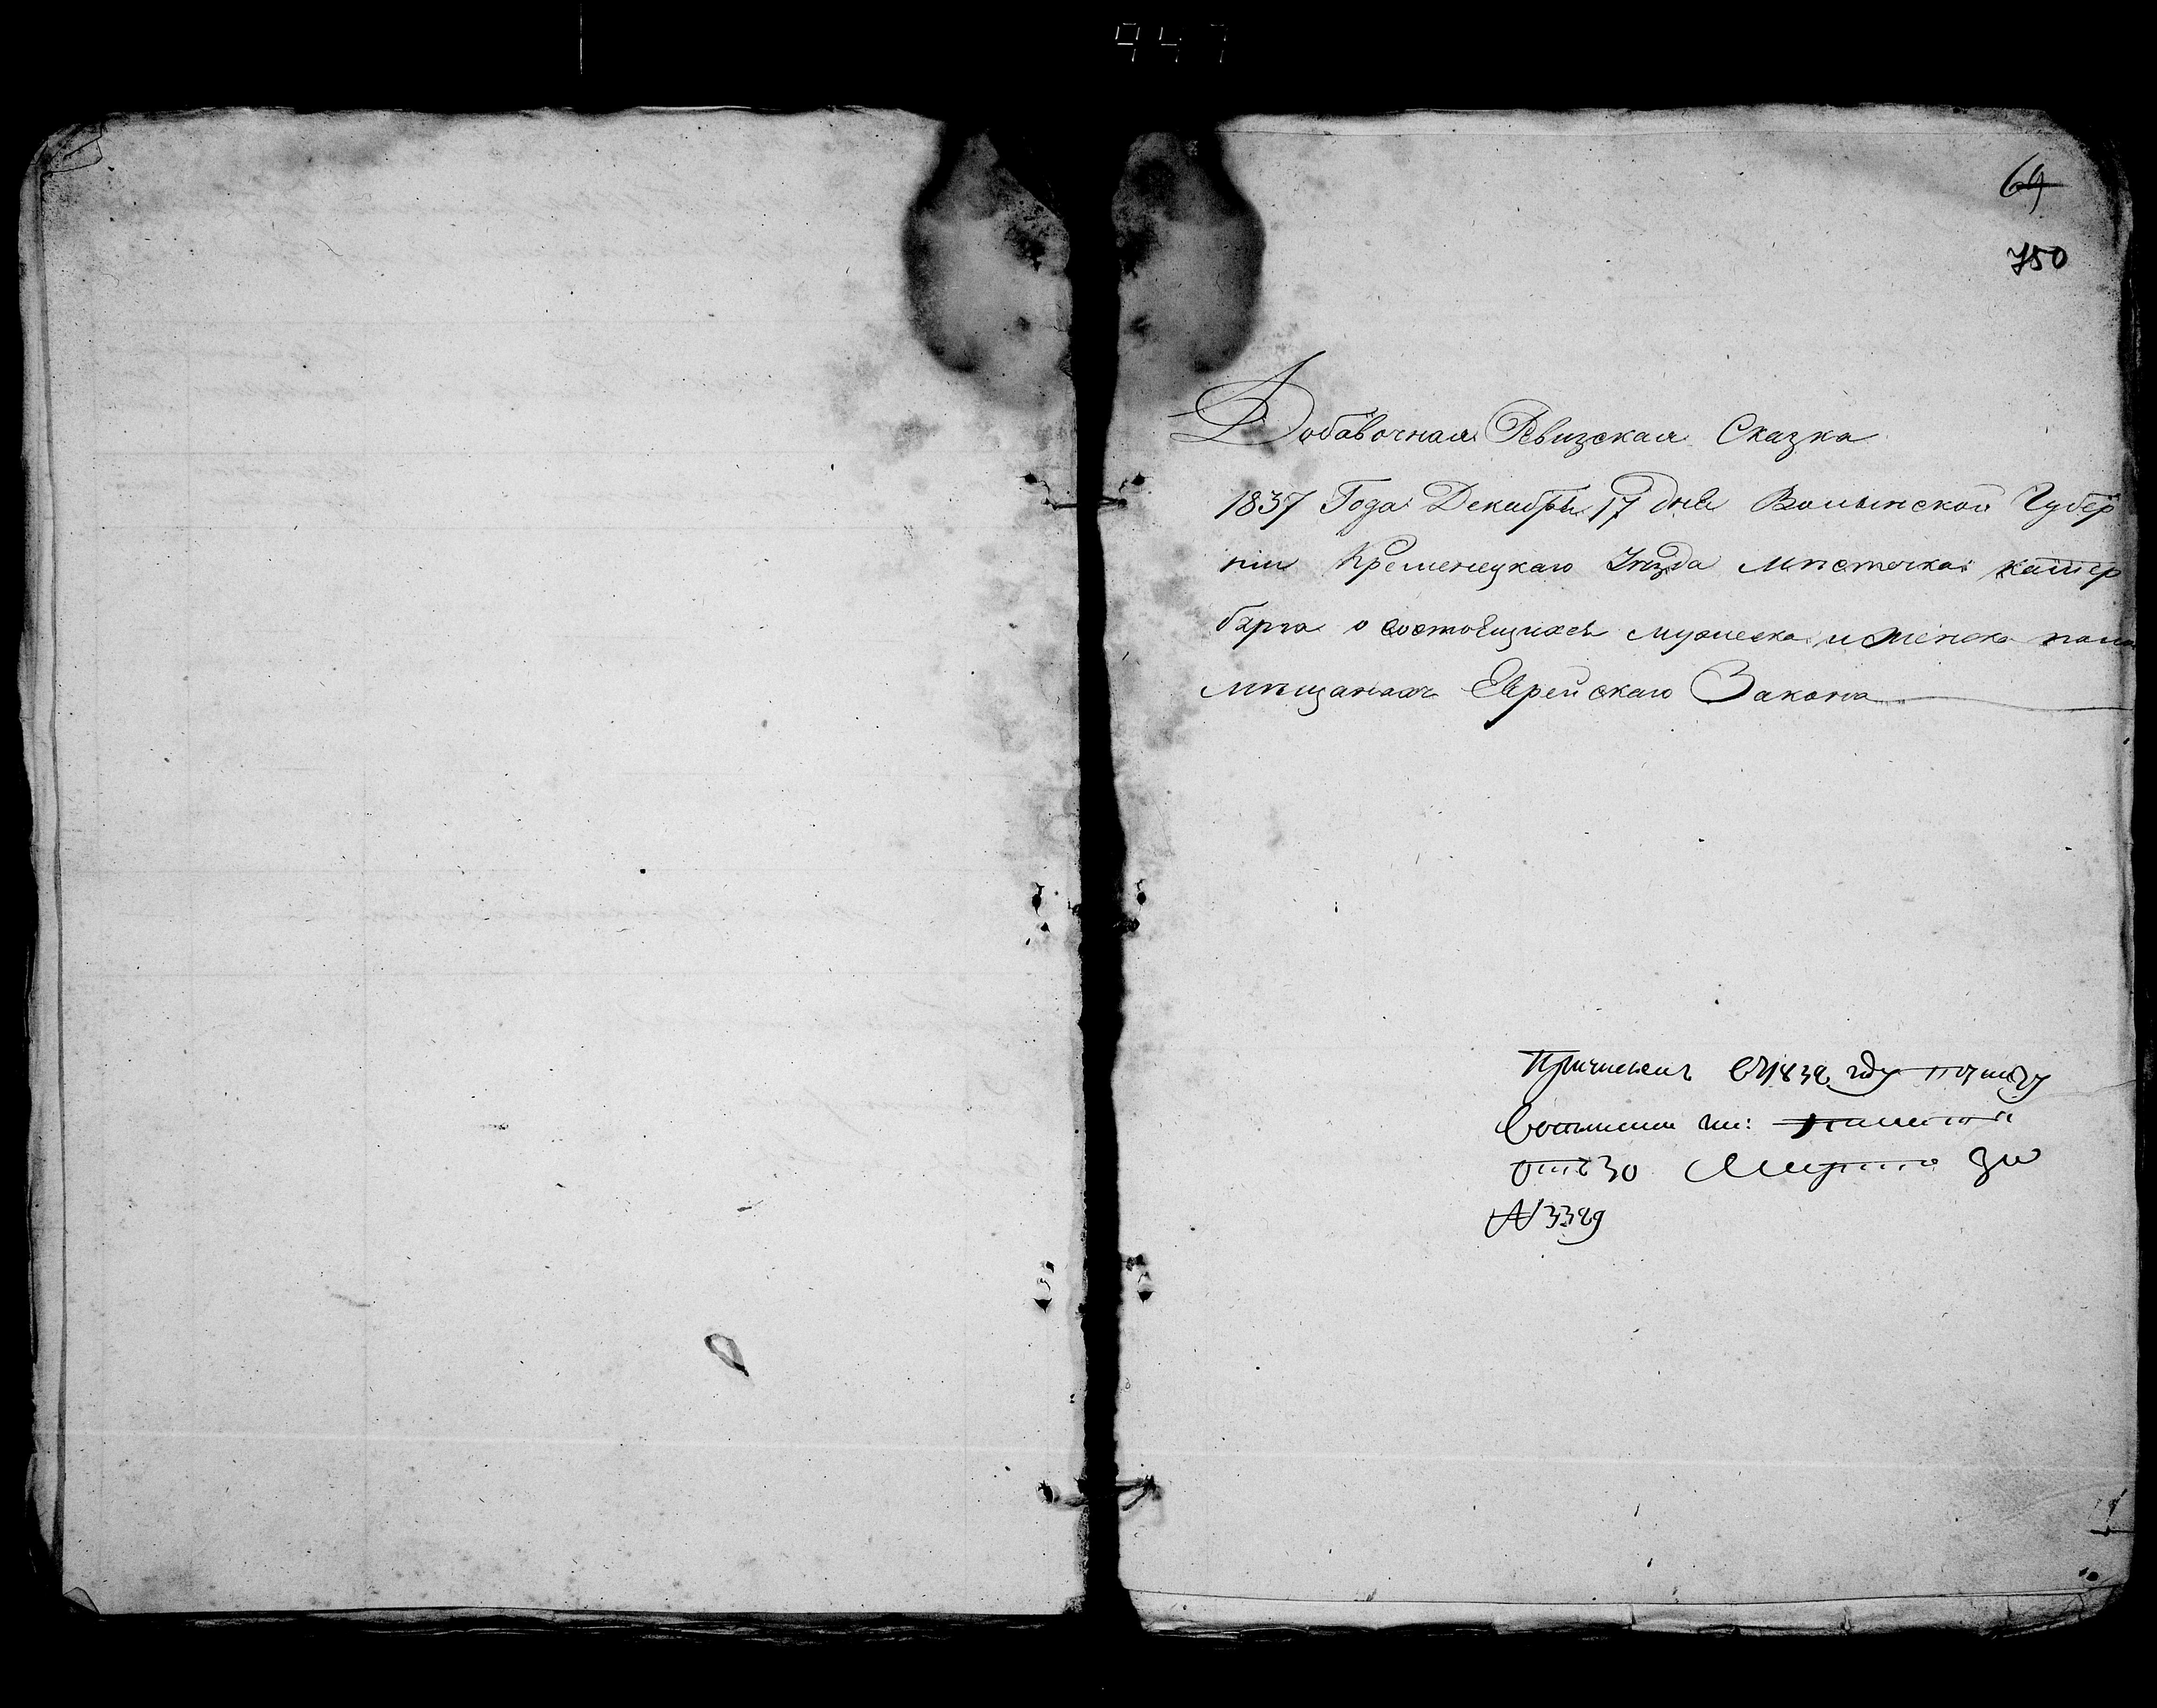 947
64
750
Добавочная Ревизская Сказка
1837 Года Декабря 17 дня Волынской Губер
ніи Кременецкаго Уѣзда Мѣстечка Катер
бурга о состоящихся мужеска и женска пола
мѣщанахъ Еврейскаго Закона
Причисленъ 1838 году по указу
отъ 30 Марта за
№ 3329